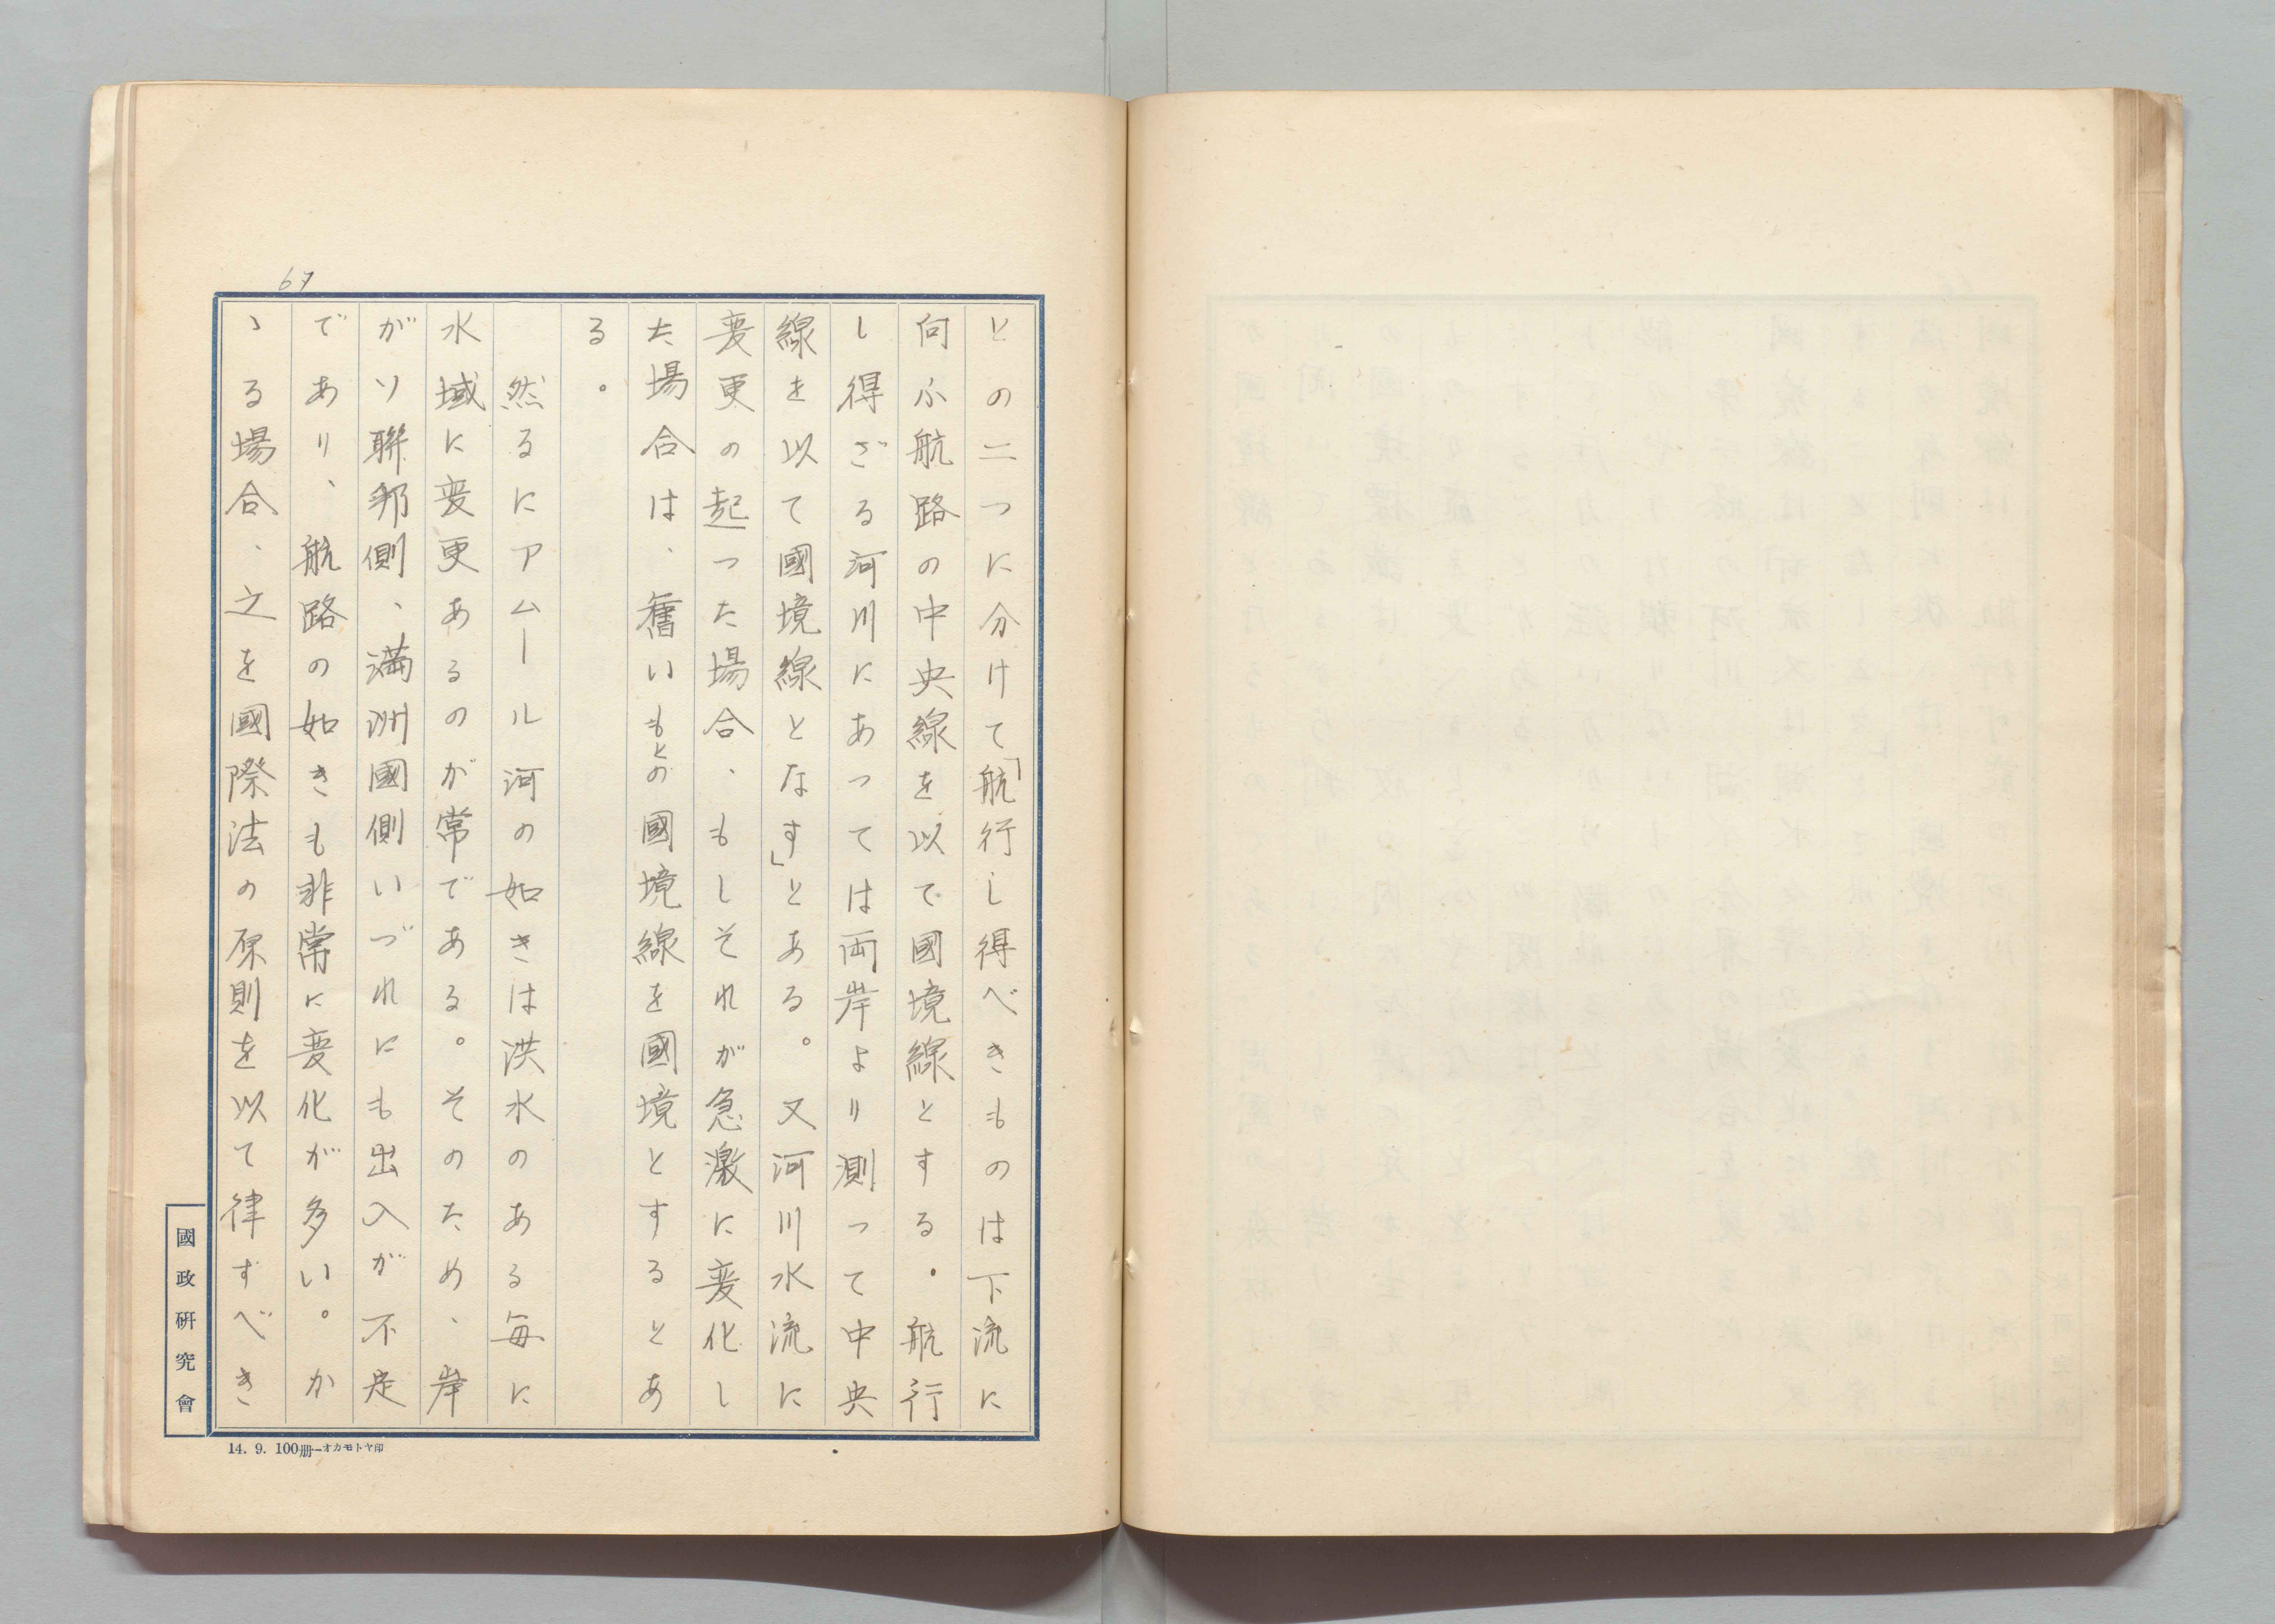 67
との二つに分けて「航行し得べきものは下流に
向ふ航路の中央線を以て國境線とする。航行
し得ざる河川にあっては両岸より測って中央
線を以て國境線となす」とある。又河川水流に
変更の起った場合、もしそれが急激に変化し
た場合は、舊いもとの國境線を國境とするとあ
る。
然るにアムール河の如きは洪水のある毎に
水域に変更あるのが常である。そのため、岸
がソ聯邦側、満洲國側いづれにも出入が不定
であり、航路の如きも非常に変化が多い。か
ゝる場合、之を國際法の原則を以て律すべき
國政研究會
14. 9. 100册—オカモトヤ印